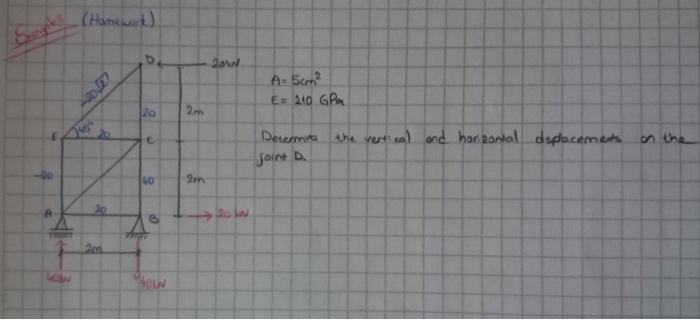 Example (Homework)
D
20kN
A= 5cm²
E= 210 GPa
-20√2
20
2m
E
45°
20
C
Determine the vertical and horizontal displacements on the
joint D.
-20
40
2m
A
20
B
20 kN
2m
40kN
40kN